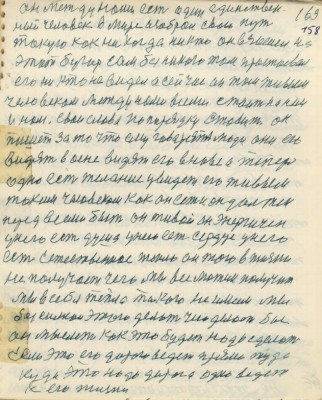 163
158
он между нами есть один единствен.
ный человек в мире избрал свой путь
такую как никогда никто он взошел на
этот бугор сам бы никого там пристоял
его никто не видел а сейчас он там живым
человеком между нами всеми стоит
и нам. свои слова по порядку ставит он
пишет за то что ему говорят люди они его
видят в сене видят его в нове а теперь
одно есть желание увидеть его живым
таким человеком как он есть он должен
перед всеми быть он живой он энергичен
у него есть душа у него есть сердце у него
есть естественное тело он того в жизни
не получает чего мы все можем получить
мы в себе тело такого не имеем мы
без силой этого делать чего делать бы
он мыслит как это будет надо сделать
сам это его дорога ведет прямо туда
куда это надо дорога одна ведет
к его жизни